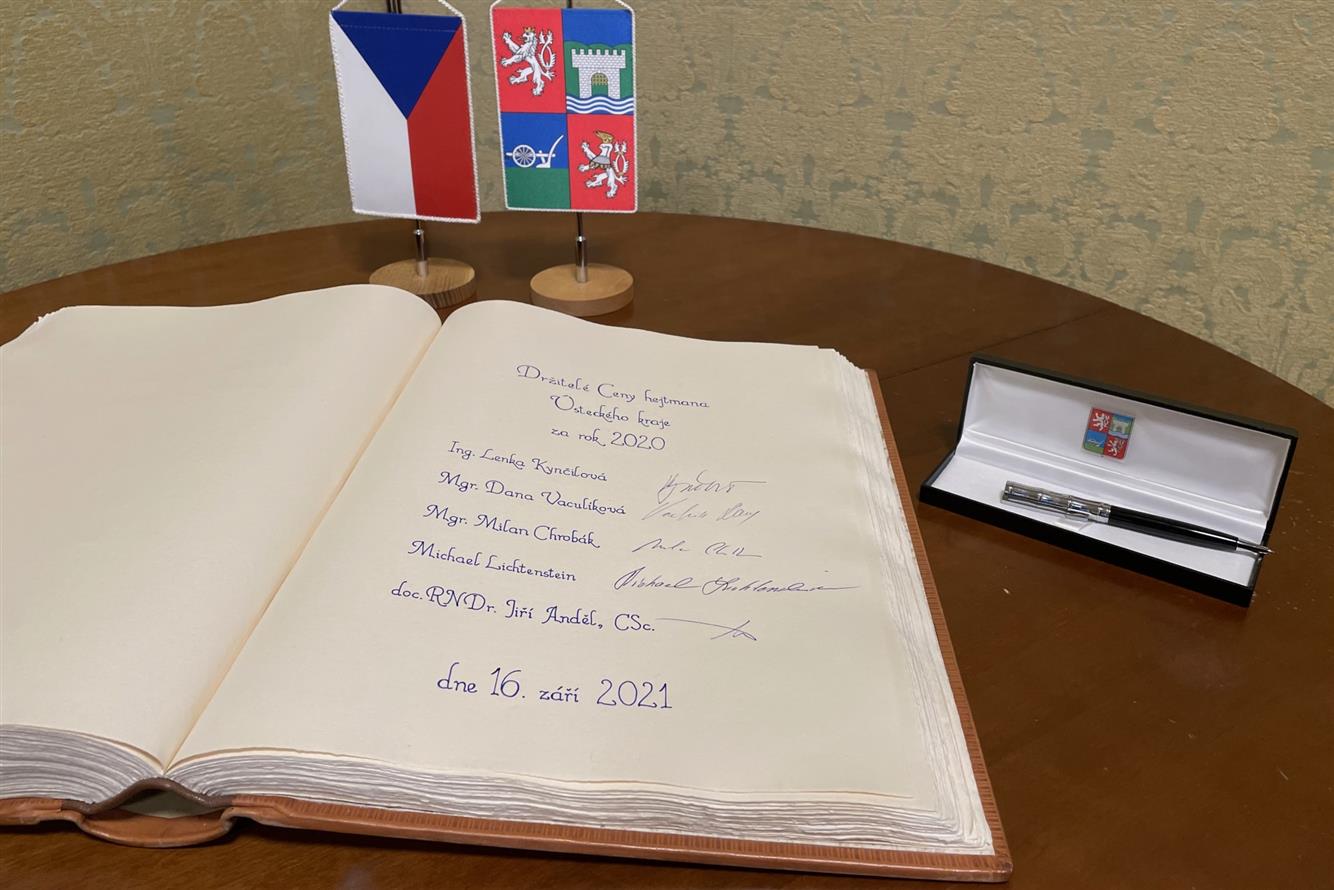 Držitelé Ceny hejtmana
Ústeckého kraje
za rok 2020
Ing. Lenka Kynčilová
Mgr. Dana Vaculíková
Mgr. Milan Chrobák
Michael Lichtenstein
doc. RNDr. Jiří Anděl, CSc.
dne 16. září 2021